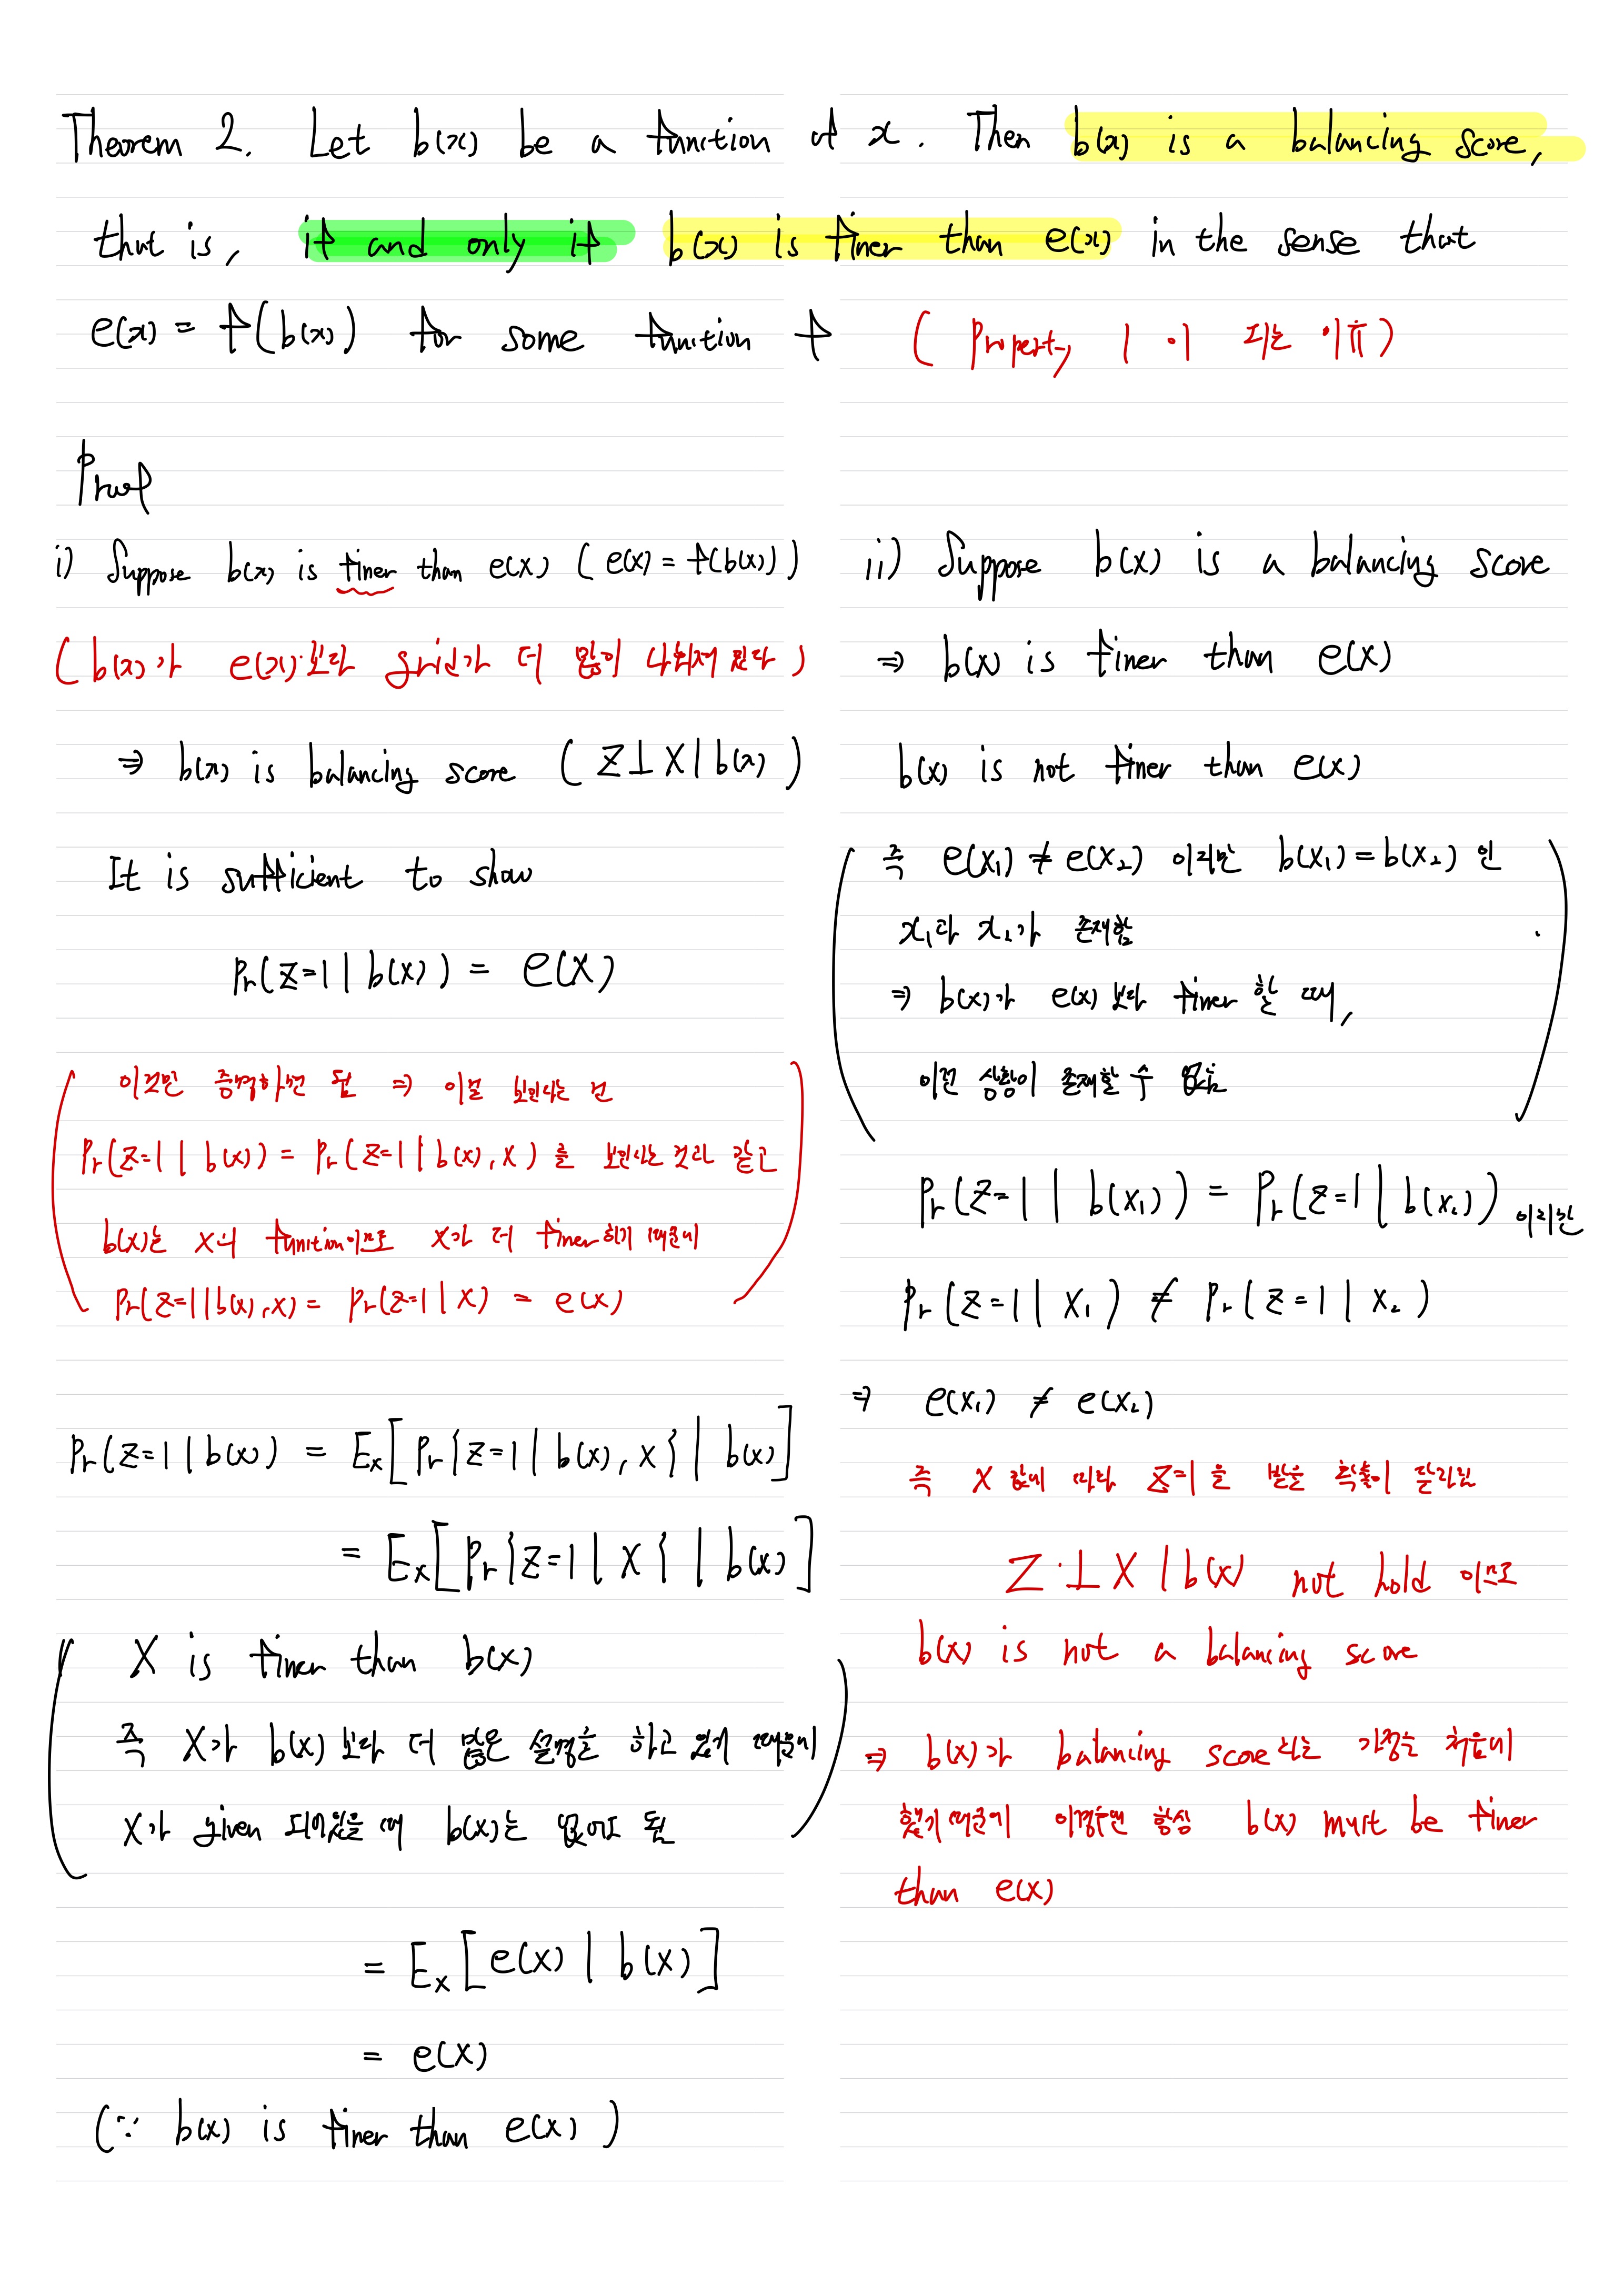 Theorem 2. Let b(x) be a function of x. Then b(x) is a balancing score,
that is, if and only if b(x) is finer than e(x) in the sense that
e(x) = f(b(x)) for some function f (Property 1 이 되는 이유)
Proof
i) Suppose b(x) is finer than e(x) (e(x) = f(b(x)))
(b(x)가 e(x)보다 grid가 더 많이 나눠져 있다)
⇒ b(x) is balancing score (Z⊥X|b(x))
It is sufficient to show
Pr(z=1|b(x)) = e(x)
이것만 증명하면 됨 ⇒ 이걸 보인다는 건
Pr(z=1|b(x)) = Pr(z=1|b(x),x)를 보인다는 것과 같고
b(x)는 x의 function이므로 x가 더 finer하기 때문에
Pr(z=1|b(x),x) = Pr(z=1|x) = e(x)
Pr(z=1|b(x)) = Ex[Pr{z=1|b(x),x}|b(x)]
= Ex[Pr{z=1|x}|b(x)]
X is finer than b(x)
즉 X가 b(x)보다 더 많은 설명을 하고 있기 때문에
X가 given 되어있을 때 b(x)는 없어도 됨
= Ex[e(x)|b(x)]
= e(x)
(∵ b(x) is finer than e(x))
ii) Suppose b(x) is a balancing score
⇒ b(x) is finer than e(x)
b(x) is not finer than e(x)
즉 e(x₁) ≠ e(x₂) 이지만 b(x₁) = b(x₂) 인
x₁과 x₂가 존재함
⇒ b(x)가 e(x)보다 finer 할 때,
이런 상황이 존재할 수 없음
Pr(z=1|b(x₁)) = Pr(z=1|b(x₂)) 이지만
Pr(z=1|x₁) ≠ Pr(z=1|x₂)
⇒ e(x₁) ≠ e(x₂)
즉 X 값에 따라 z=1을 받을 확률이 달라짐
Z⊥X|b(x) not hold 이므로
b(x) is not a balancing score
⇒ b(x)가 balancing score라는 가정을 처음에
했기 때문에 항상 b(x) must be finer
than e(x)